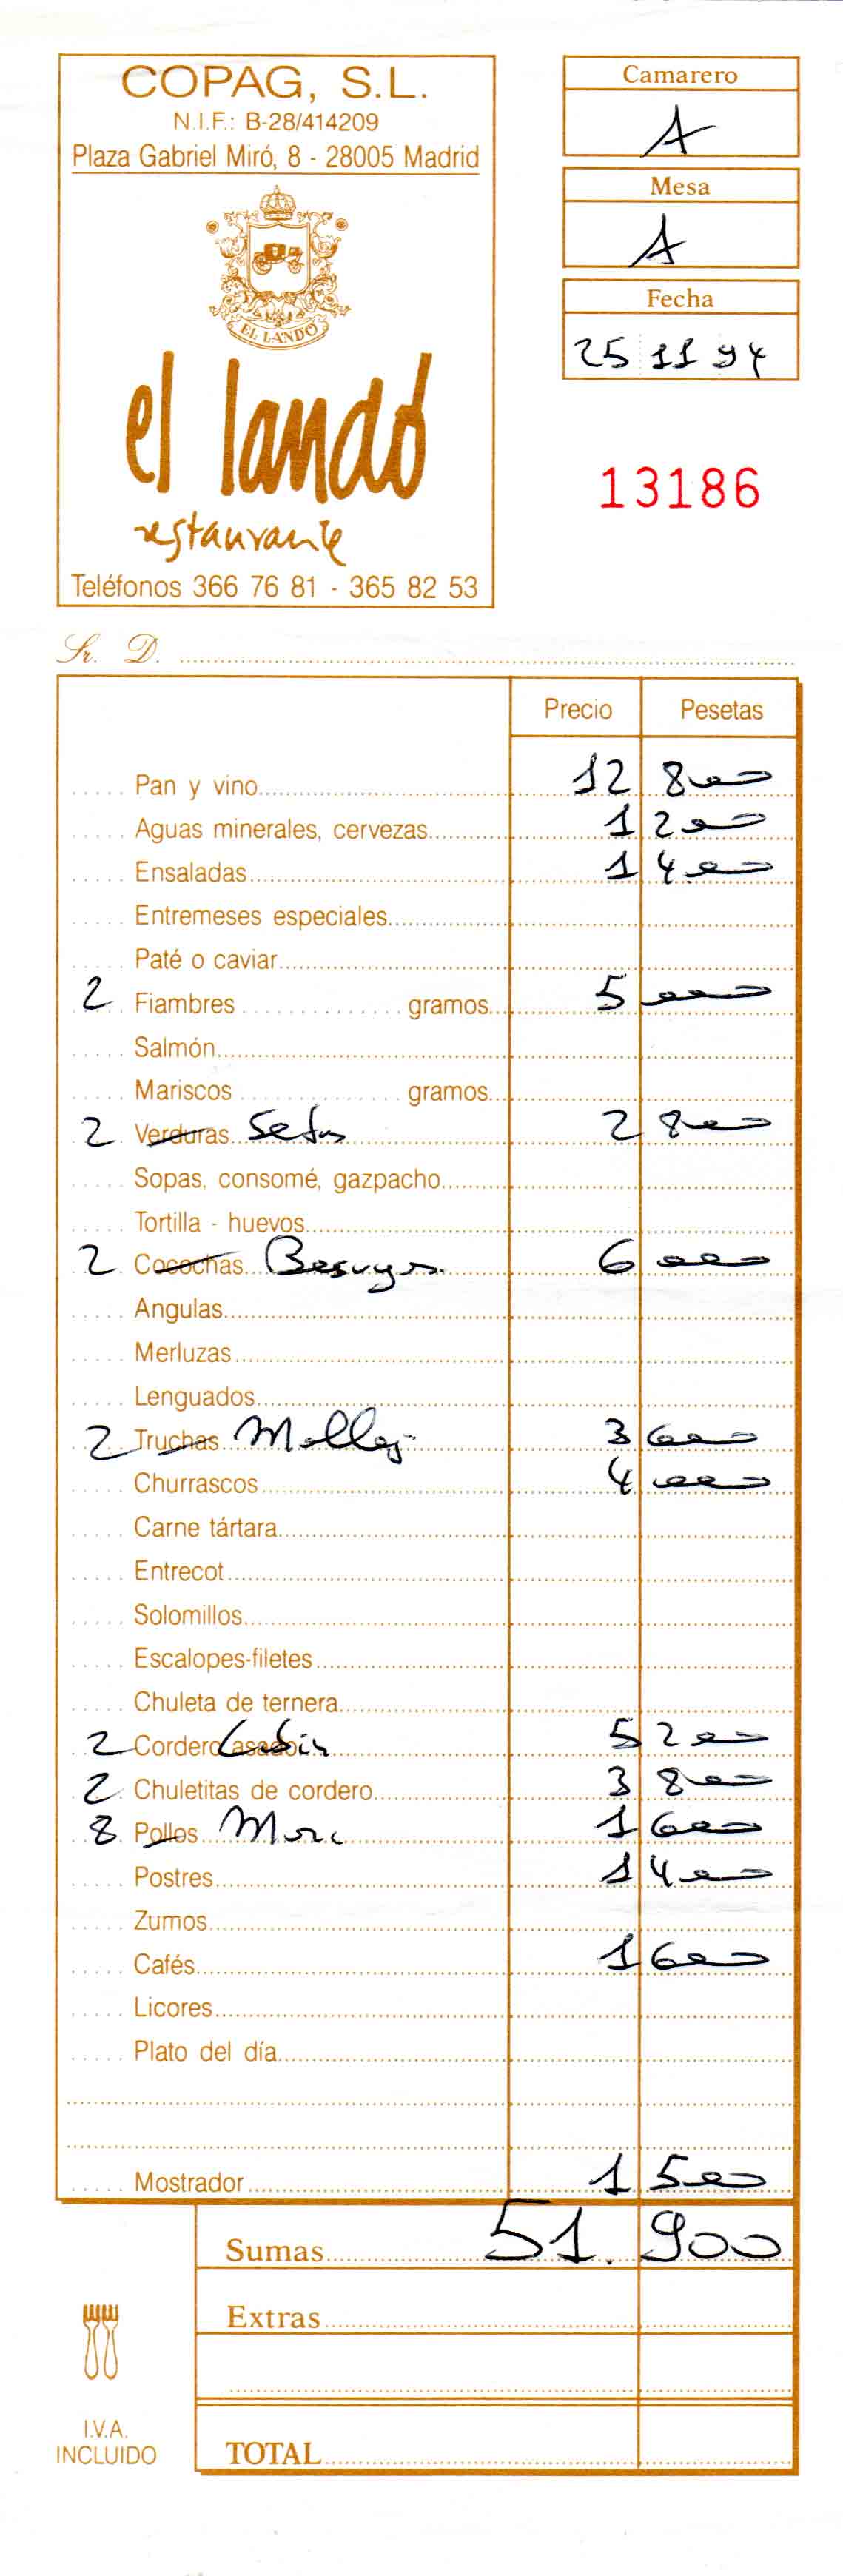 COPAG, S.L.
N.I.F.: B-28/414209
Plaza Gabriel Miró, 8 - 28005 Madrid
EL LANDO
el landó
restaurante
Teléfonos 366 76 81 - 365 82 53
Camarero
A
Mesa
A
Fecha
25 11 94
13186
Sr. D.
Precio Pesetas
Pan y vino 12 800
Aguas minerales, cervezas 1 200
Ensaladas 1 400
Entremeses especiales
Paté o caviar
2 Fiambres gramos 5 000
Salmón
Mariscos gramos
2 Verduras Setas 2 800
Sopas, consomé, gazpacho
Tortilla - huevos
2 Cocochas Besugos 6 000
Angulas
Merluzas
Lenguados
2 Truchas Mollej 3 600
Churrascos 4 000
Carne tártara
Entrecot
Solomillos
Escalopes-filetes
Chuleta de ternera
2 Cordero asado 5 200
2 Chuletitas de cordero 3 800
8 Pollos Morc 1 600
Postres 1 400
Zumos
Cafés 1 600
Licores
Plato del día
Mostrador 1 500
Sumas 51.900
Extras
I.V.A.
INCLUIDO
TOTAL